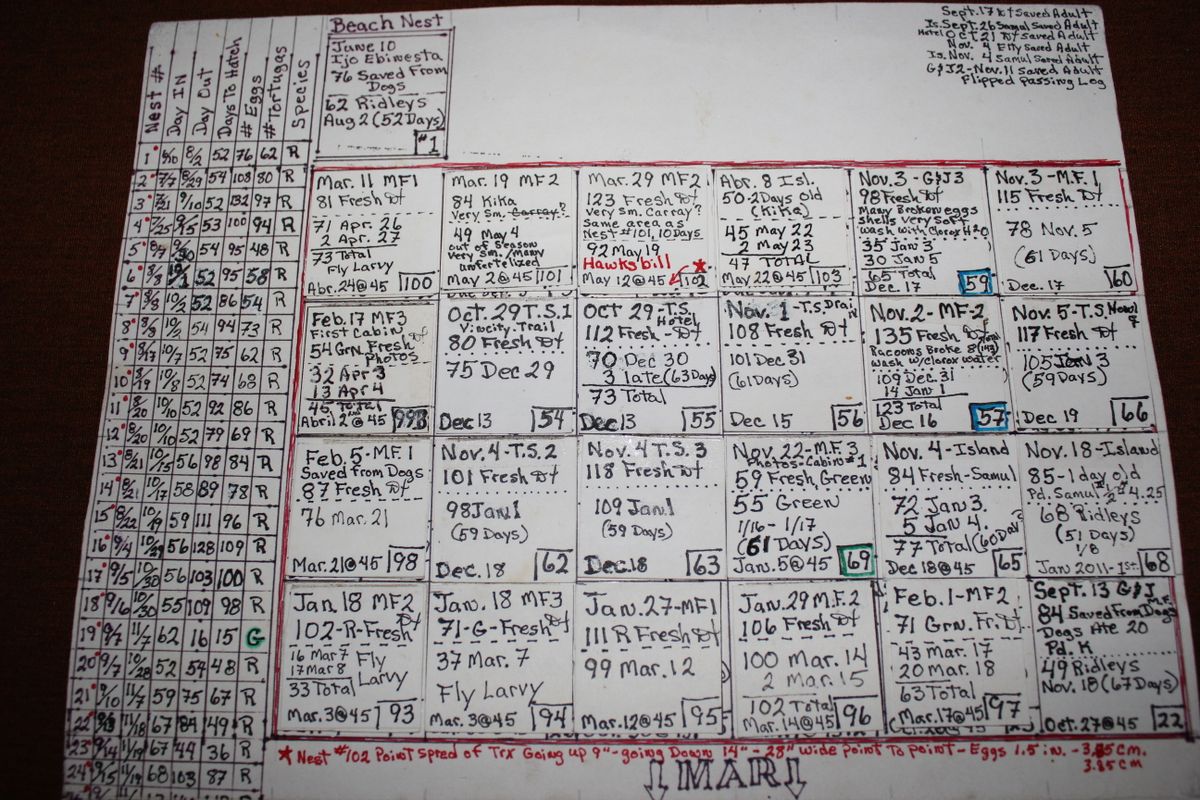 Beach Nest
June 10
Ijo Ebinesta
76 Saved From
Dogs
62 Ridleys
Aug 2 (52 Days)
#1
Saved Adult
Is. Sept. 26 Samul Saved Adult
Hotel Oct 21 Saved Adult
Nov. 4 Effy Saved Adult
Is. Nov. 4 Samul Saved Adult
G&J2-Nov. 11 Saved Adult
Flipped Passing Log
Nest # Day IN Day Out Days To Hatch # Eggs # Tortugas Species
1 6/10 8/2 52 76 62 R
2 7/7 8/29 54 108 80 R
3 7/21 9/10 52 132 97 R
4 7/25 9/15 53 100 94 R
5 54 95 48 R
6 8/8 52 95 58 R
7 8/8 10/2 52 86 54 R
8 8/8 10/2 54 94 73 R
9 8/17 10/7 52 75 62 R
10 8/19 10/8 52 74 68 R
11 8/20 10/10 52 92 86 R
12 8/20 10/10 52 79 69 R
13 8/21 10/15 56 98 84 R
14 8/21 10/17 58 89 78 R
15 8/22 10/19 59 111 96 R
16 9/4 10/29 56 128 109 R
17 9/5 10/30 56 103 100 R
18 9/6 10/30 55 109 98 R
19 9/7 11/7 62 16 15 G
20 9/7 10/28 52 54 48 R
21 9/10 11/7 59 75 67 R
22 11/18 67 84 49 R
23 9/14 67 44 36 R
24 9/15 11/19 68 103 87 R
Mar. 11 MF1
81 Fresh
71 Apr. 26
2 Apr. 27
73 Total
Fly Larvy
Abr. 24@45 100
Mar. 19 MF2
84 Kika
Very Sm. Carray?
49 May 4
out of Season
Very Sm./many
unfertelized
May 2@45 101
Mar. 29 MF2
123 Fresh
Very Sm. Carray?
Same area as
Nest #101, 10 Days
92 May 19
Hawksbill *
May 12@45 102
Abr. 8 Isl.
50-2 Days Old
(Kika)
45 May 22
2 May 23
47 TOTAL
May 22@45 103
Nov. 3 - G&J3
98 Fresh
Many Broken eggs
Shells very Soft
Wash with Clorox H2O
35 Jan 3
30 Jan 5
65 Total
Dec. 17 59
Nov. 3 - M.F. 1
115 Fresh
78 Nov. 5
(61 Days)
Dec. 17 60
Feb. 17 MF3
First Cabin
54 Grn. Fresh
Photos
32 Apr 3
13 Apr 4
45 Total
Abril 2@45 99
Oct. 29 T.S. 1
Vincity-Trail
80 Fresh
75 Dec 29
Dec 13 54
Oct 29 - T.S.
Hotel
112 Fresh -
70 Dec 30
3 late (63 Days)
73 Total
Dec 13 55
Nov. 1 - T.S. Drain
108 Fresh
101 Dec 31
(61 Days)
Dec 15 56
Nov. 2 - MF-2
135 Fresh
Racoons Broke 8 (143)
Wash w/Clorox Water
109 Dec. 31
14 Jan 1
123 Total
Dec 16 57
Nov. 5 - T.S. Hotel
117 Fresh
105 Jan 3
(59 Days)
Dec 19 66
Feb. 5 - M.F. 1
Saved from Dogs
87 Fresh
76 Mar. 21
Mar. 21@45 98
Nov. 4 - T.S. 2
101 Fresh
98 Jan 1
(59 Days)
Dec. 18 62
Nov. 4 T.S. 3
118 Fresh
109 Jan. 1
(59 Days)
Dec. 18 63
Nov. 22 - M.F. 3
Photos-Cabin #1
59 Fresh Green
55 Green
1/16 - 1/17
(61 Days)
Jan. 5@45 69
Nov. 4 - Island
84 Fresh-Samul
72 Jan 3.
5 Jan 4.
77 Total (60 Days)
Dec 18@45 65
Nov. 18 - Island
85-1 day old
Pd. Samul 4.25
68 Ridleys
(51 Days)
1/8
Jan 2011-1st. 68
Jan 18 MF2
102-R-Fresh
16 Mar 7 Fly
17 Mar 8 Larvy
33 Total
Mar. 3@45 93
Jan. 18 MF3
71-G-Fresh
37 Mar. 7
Fly Larvy
Mar. 3@45 94
Jan. 27 - MF1
111 R Fresh
99 Mar. 12
Mar. 12@45 95
Jan. 29 M.F. 2
106 Fresh
100 Mar. 14
2 Mar. 15
102 Total
Mar. 14@45 96
Feb. 1 - MF2
71 Grn. Fr.
43 Mar. 17
20 Mar. 18
63 Total
(Mar. 17@45 97
Sept. 13 G&J
M.F.
84 Saved From Dogs
Dogs Ate 20
Pd. K
49 Ridleys
Nov. 18 (67 Days)
Oct. 27@45 22
* Nest #102 Point Spred of Trx Going up 9"-going Down 14" - 28" wide Point To point - Eggs 1.5 in. - 3.85 cm.
3.85 cm
MAR